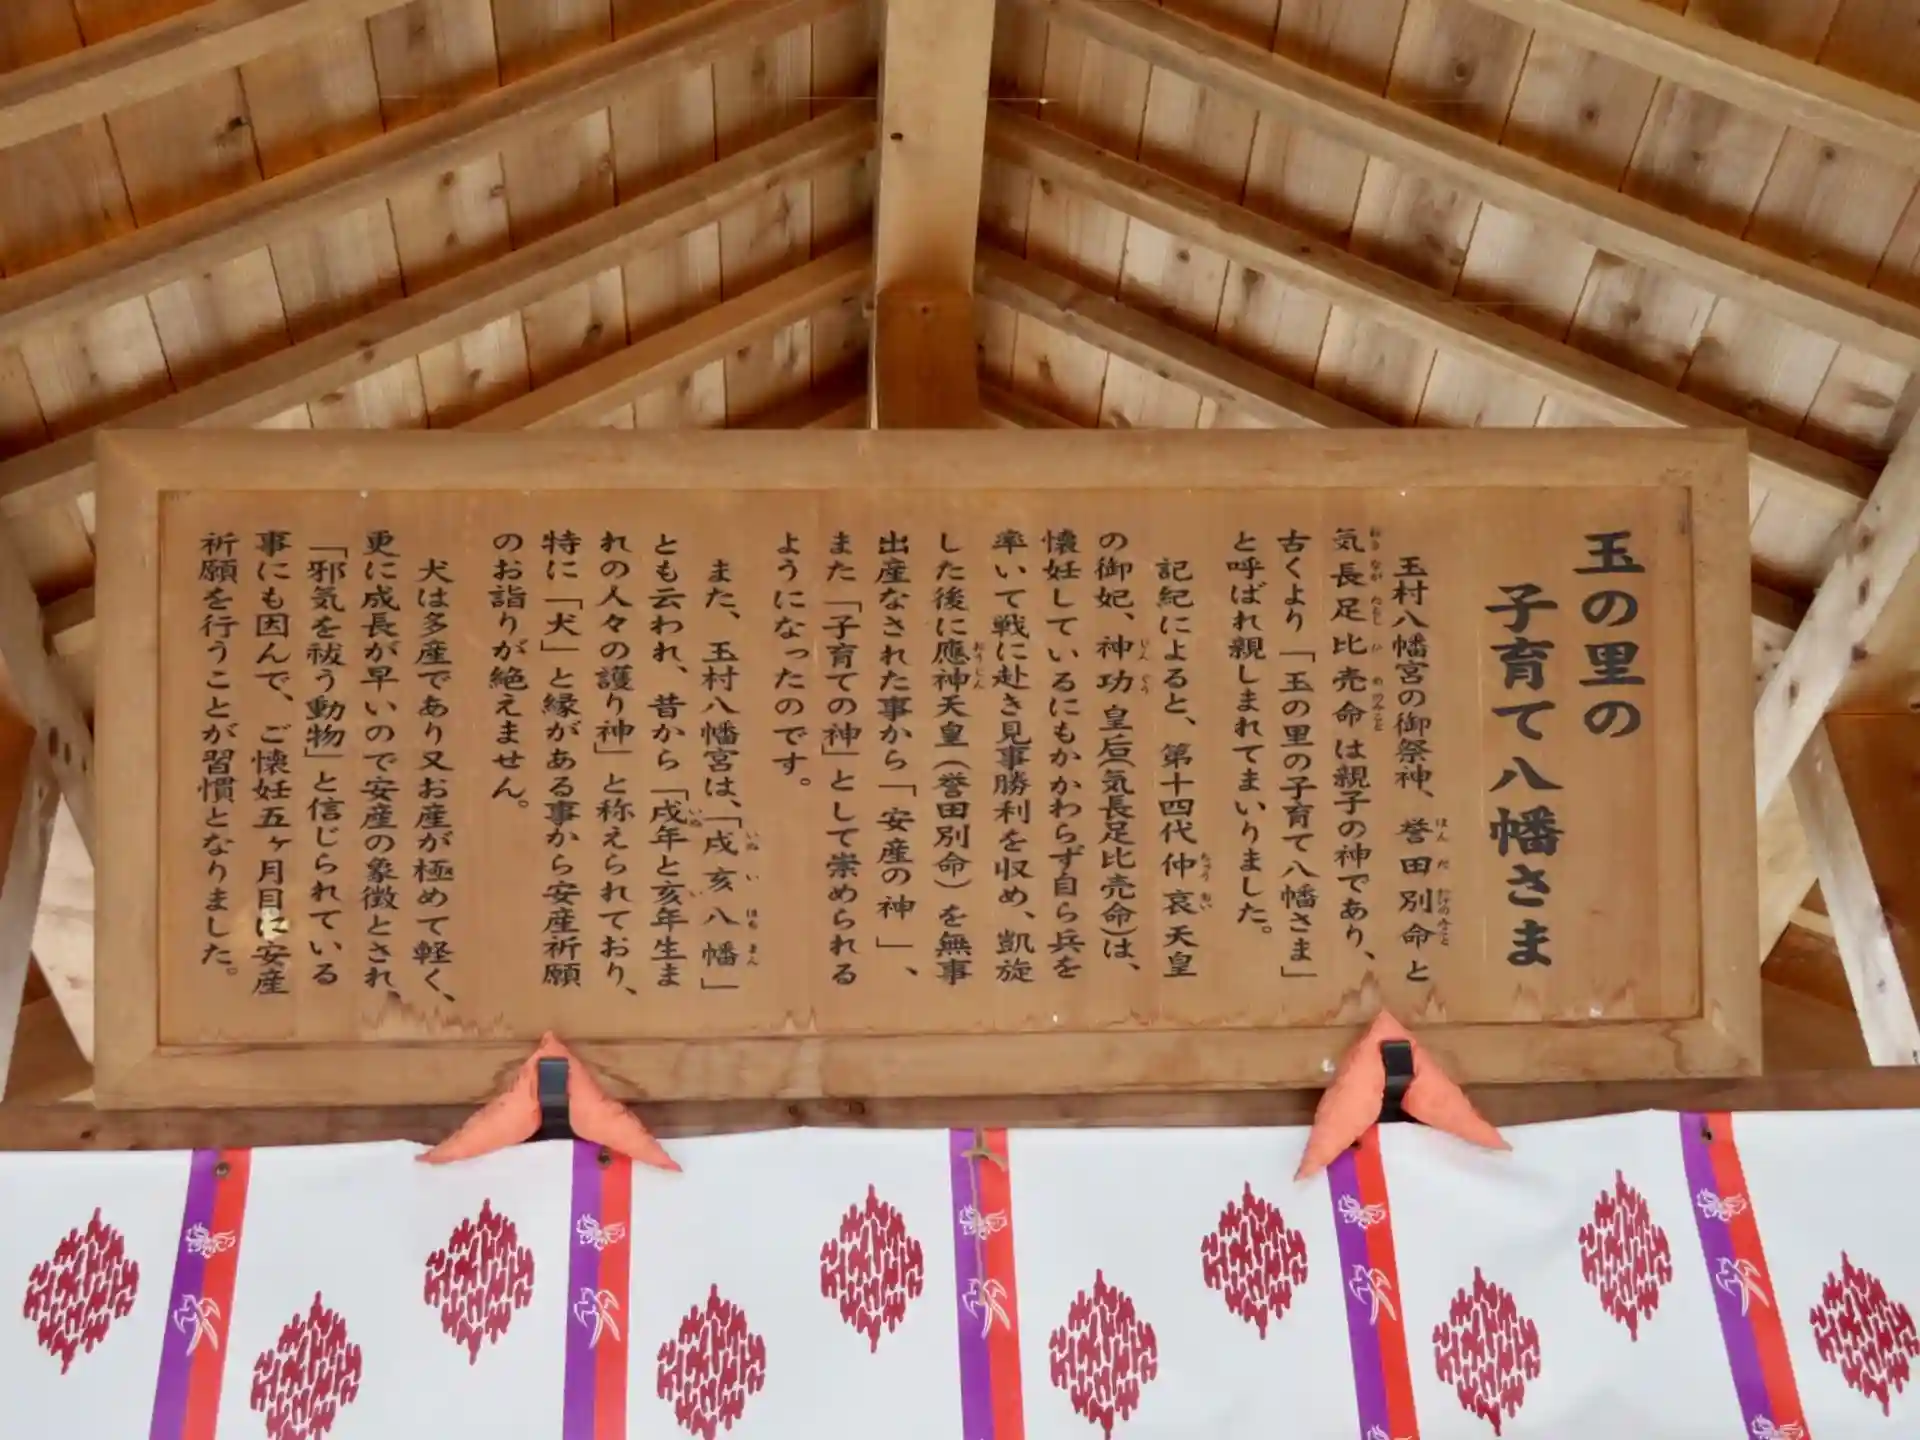 玉の里の
子育て八幡さま
玉村八幡宮の御祭神、誉田別命と
気長足比売命は親子の神であり、
古くより「玉の里の子育て八幡さま」
と呼ばれ親しまれてまいりました。
記紀によると、第十四代仲哀天皇
の御妃、神功皇后(気長足比売命)は、
懐妊しているにもかかわらず自ら兵を
率いて戦に赴き見事勝利を収め、凱旋
した後に應神天皇(誉田別命)を無事
出産なされた事から「安産の神」、
また「子育ての神」として崇められる
ようになったのです。
また、玉村八幡宮は、「戌亥八幡」
とも云われ、昔から「戌年と亥年生ま
れの人々の護り神」と称えられており、
特に「犬」と縁がある事から安産祈願
のお詣りが絶えません。
犬は多産であり又お産が極めて軽く、
更に成長が早いので安産の象徴とされ、
「邪気を祓う動物」と信じられている
事にも因んで、ご懐妊五ヶ月目に安産
祈願を行うことが習慣となりました。